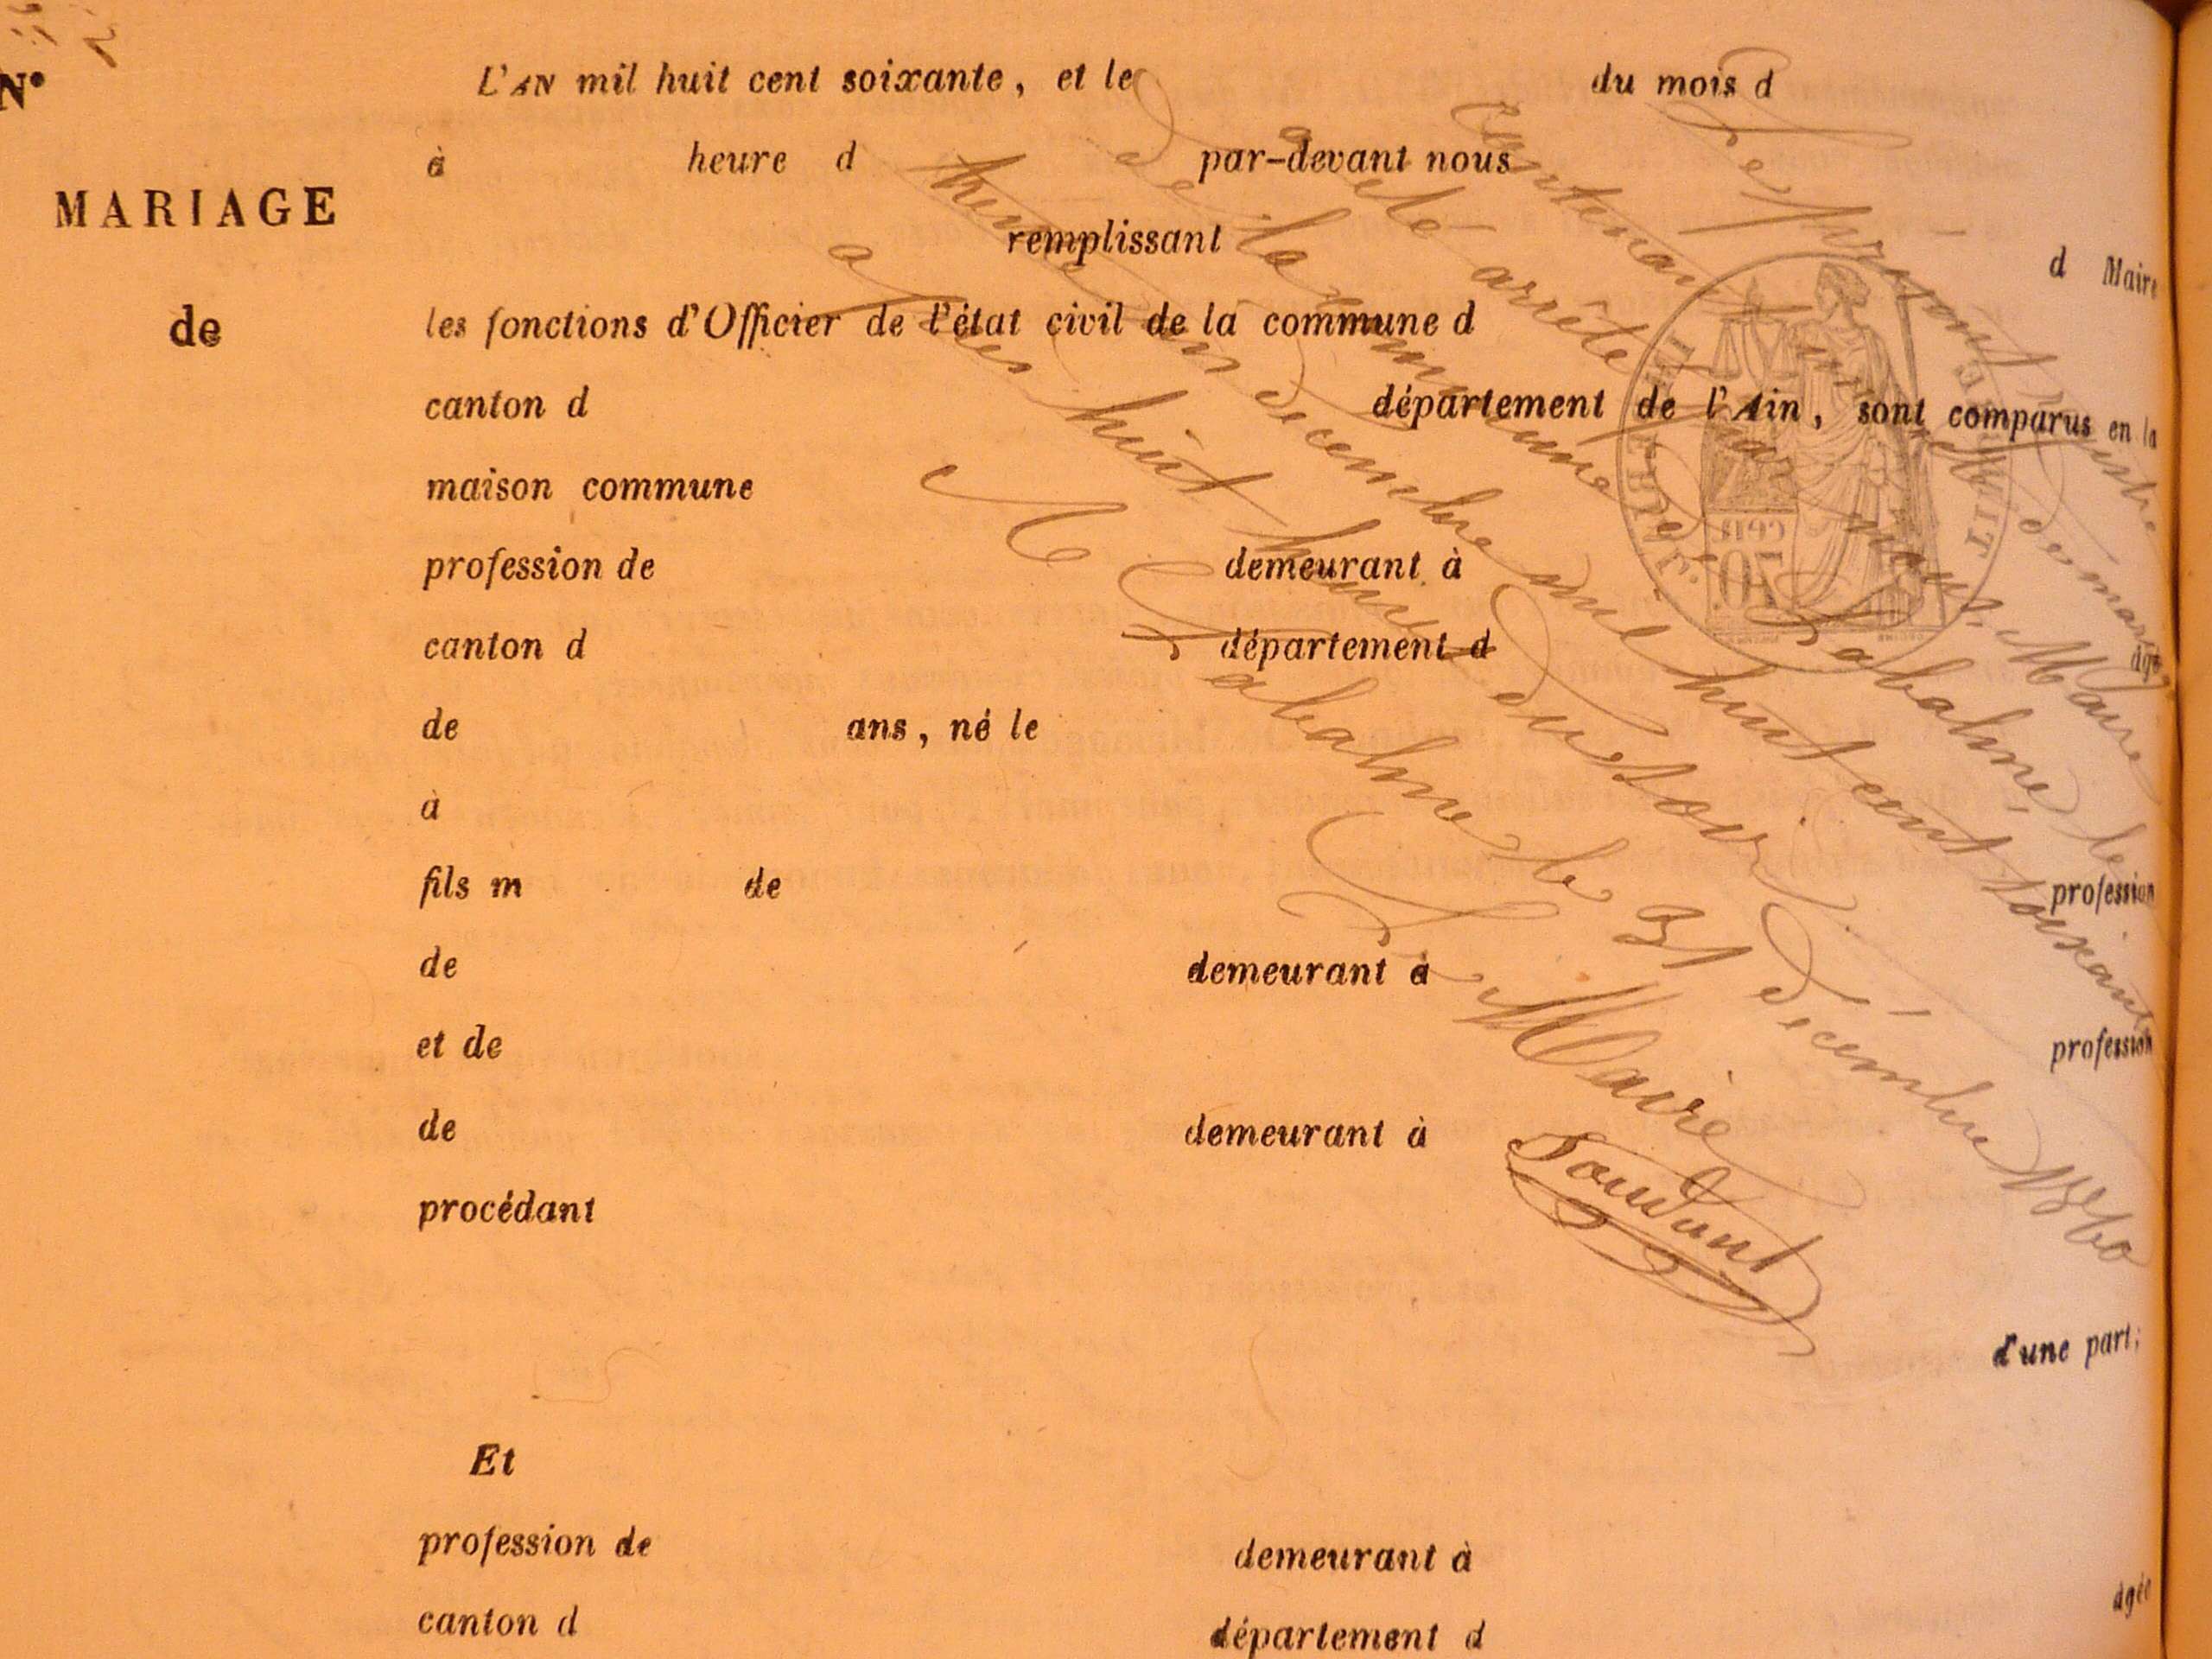 N°
L'AN mil huit cent soixante, et le du mois d
à heure d par-devant nous
MARIAGE
remplissant d Maire
de
les fonctions d'Officier de l'état civil de la commune d
canton d département de l'Ain, sont comparus en la
maison commune
profession de demeurant à
canton d département d âgé
de ans, né le
à
fils m de profession
de demeurant à
et de profession
de demeurant à
procédant
d'une part;
Et
profession de demeurant à
canton d département d âgée
Le présent registre de mariage
contenant
a été arrêté par nous, Maire
de la commune de Labalme, le
trente un décembre mil huit cent soixante
après huit heures du soir
A Labalme le 31 décembre 1860
Le Maire